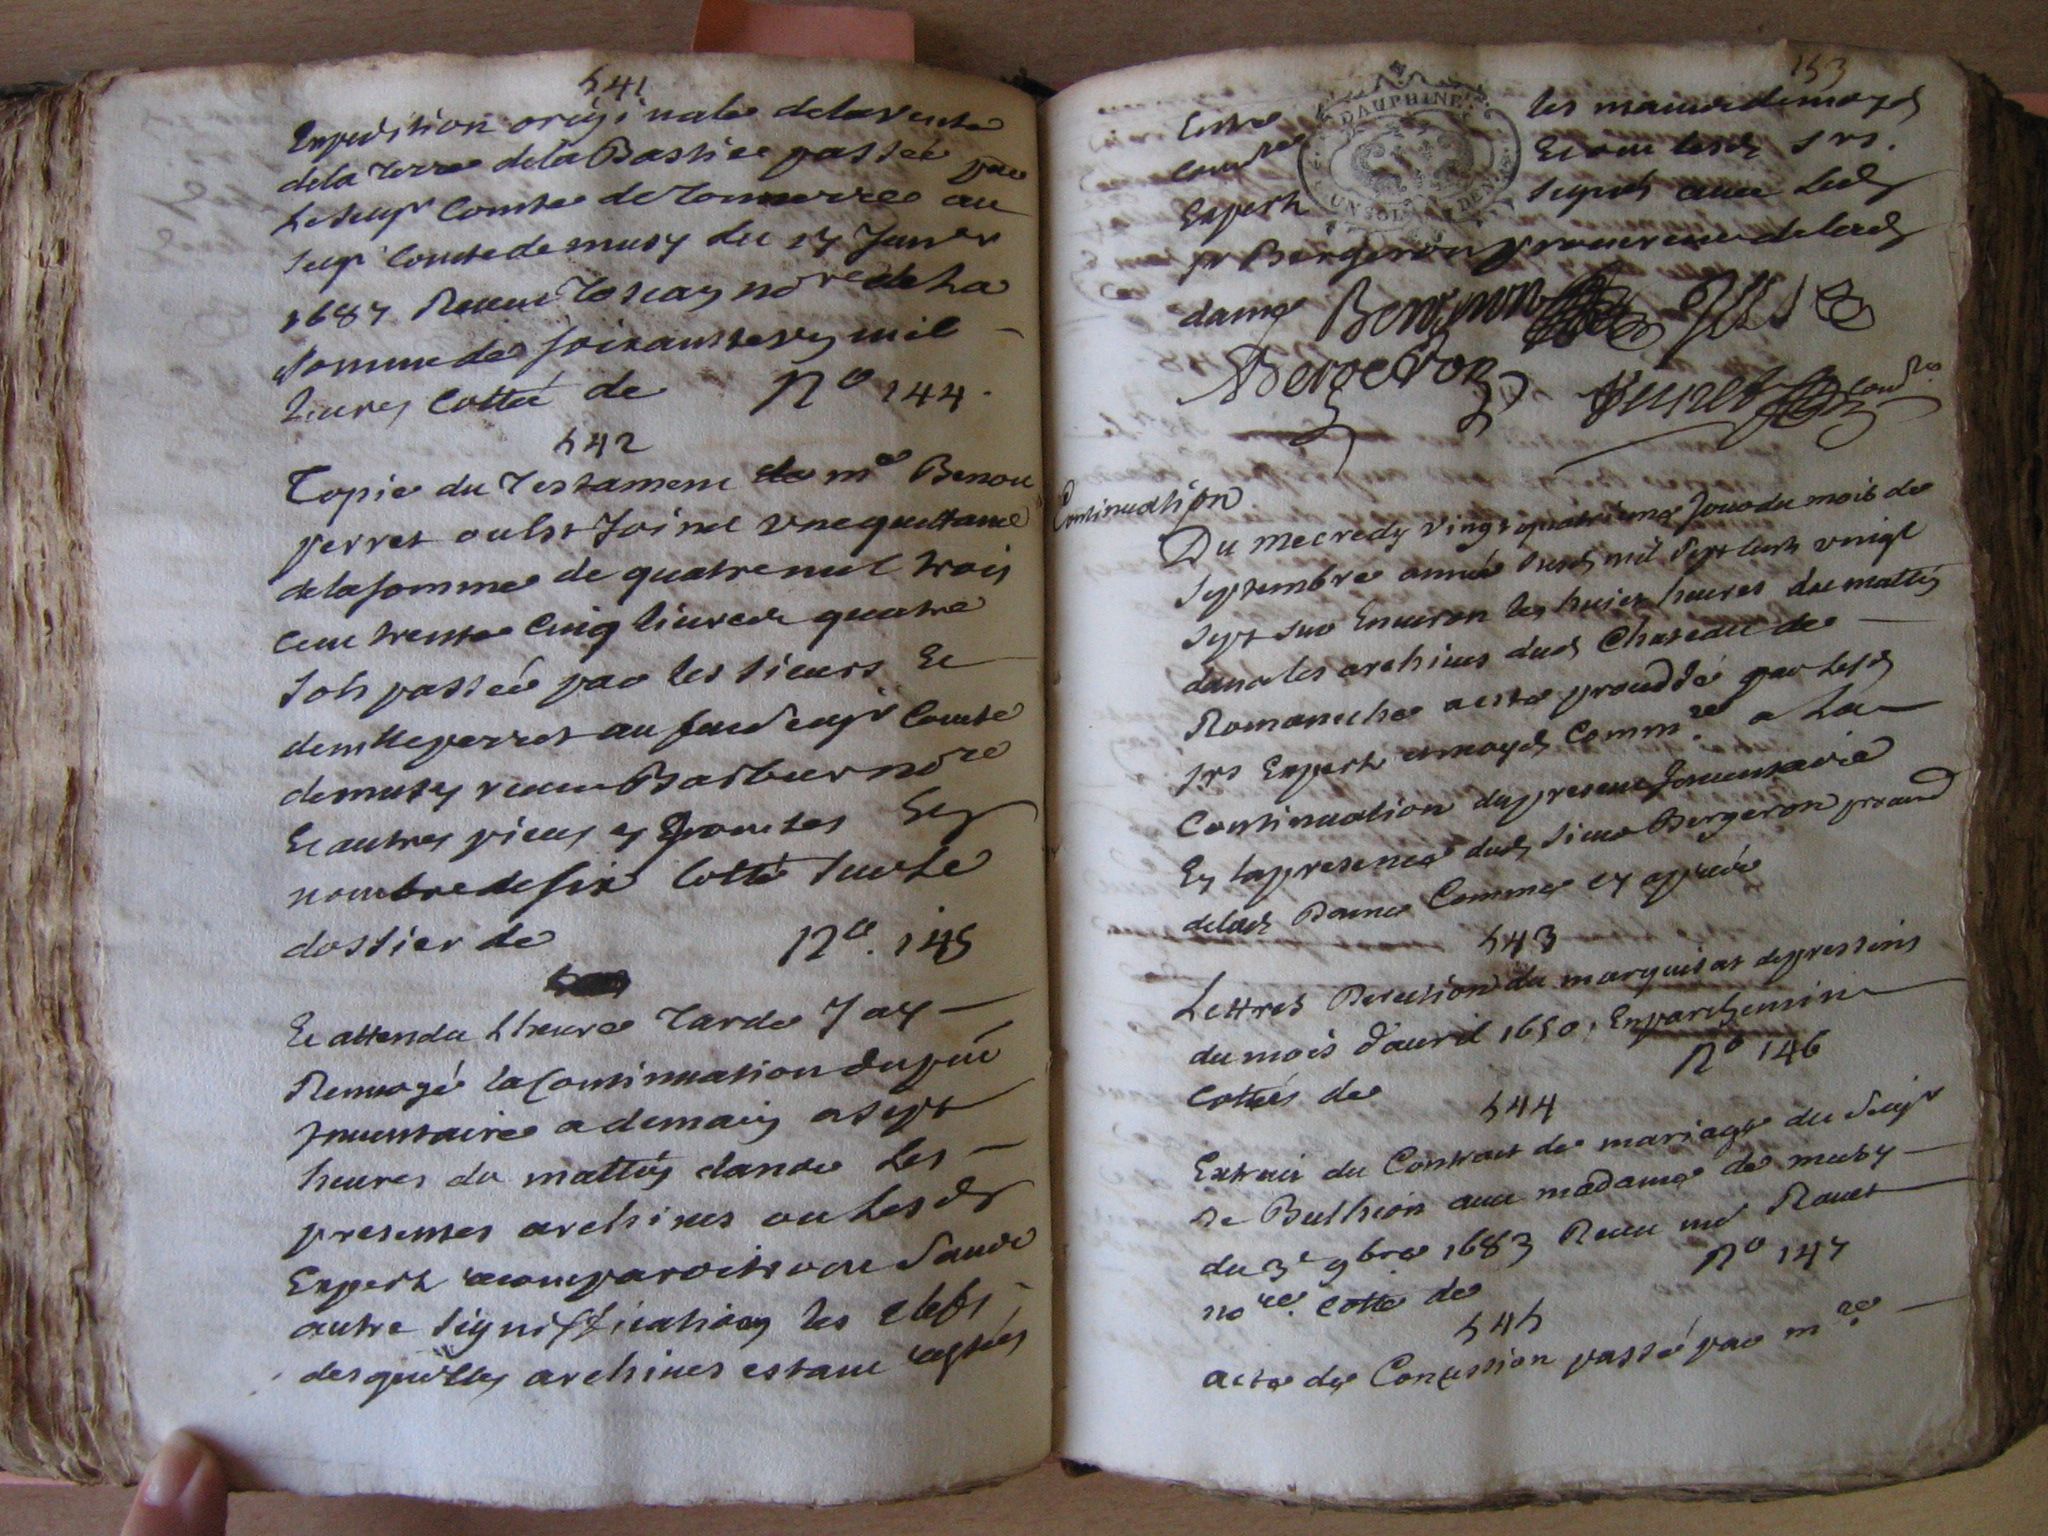 541
Expedition originale delavente
dela Terre dela Bastiee passée par
Leseigr Comte de Tonnerre au
seigr Comte de musy du 17 Janvr
1687 Receue Toscan nore de La
somme de soixante mil
livres Cotté de No 144.
542
Copie du Testament de me Benou
perret oulst Joinct vne quittance
delasomme de quatre mil trois
cent trente Cinq livres quatre
sols passée par les sieurs Et
demlle perret au feu seigr Comte
demusy receue Barbier nore
Et autres pieces y Enoncées En
nombre de six Cotté sur Le
dossier de No. 145
Et attendu Lheure Tarde Jay
Renvoyé la Continuation du put
Inventaire a demain a sept
heures du mattin dans Les
presentes archives ou Lesds
Experts comparoitront sans
autre signiffication les clefs
desquelles archives estant restées
153
DAUPHINE
UN SOL
DEN
Entre les mains demoyd
Et avec lesd srs.
Experts avec Led
sr Bergeron procureur delad
dame
Bergeron
Continuation
Du mecredy vingt quatrieme Jour du mois de
septembre année susd mil sept cent vingt
sept sur Environ les huict heures du mattin
dans les archives dud Chateau de
Romaneche a esté proceddé par lesd
srs Experts et moyd Commre a La
Continuation du present Inventaire
En lapresence dud sieur Bergeron procur
delad Dame Comme cy apprès
543
Lettres Derection du marquisat de pressins
du mois d'avril 1650, En parchemin
Cottées de No 146
544
Extrait du Contract de mariage du Seigr
De Bullion avec madame de musy
du 3e 9bre 1683 Receu me Ravet
nore. Cotté de No 147
545
acte de Concession passé par mre